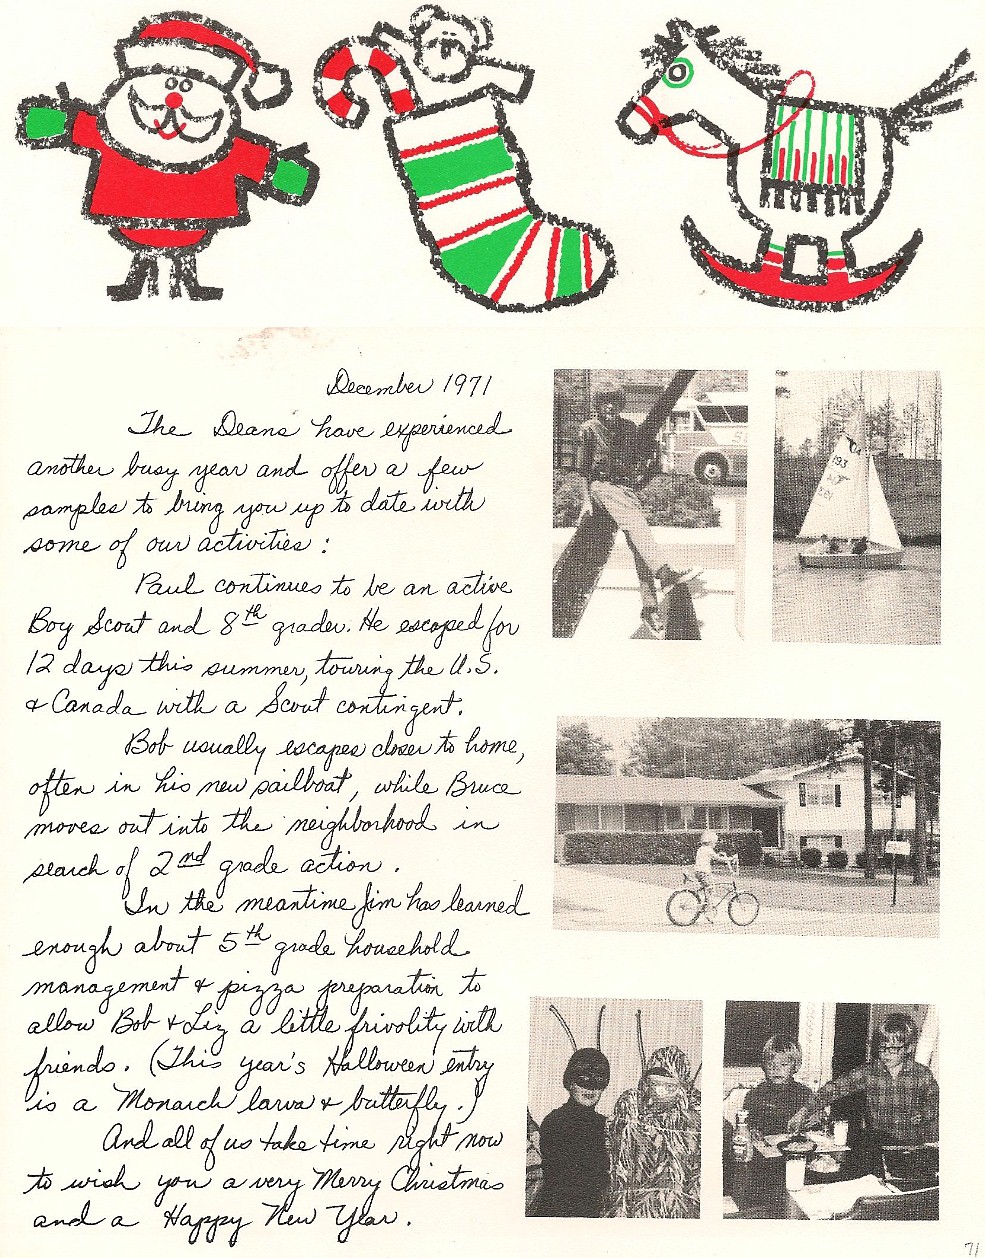 December 1971
The Deans have experienced
another busy year and offer a few
samples to bring you up to date with
some of our activities:
Paul continues to be an active
Boy Scout and 8th grader. He escaped for
12 days this summer, touring the U.S.
& Canada with a Scout contingent.
Bob usually escapes closer to home,
often in his new sailboat, while Bruce
moves out into the neighborhood in
search of 2nd grade action.
In the meantime Jim has learned
enough about 5th grade household
management & pizza preparation to
allow Bob & Liz a little frivolity with
friends. (This year's Halloween entry
is a Monarch larva & butterfly.)
And all of us take time right now
to wish you a very Merry Christmas
and a Happy New Year.
193
71